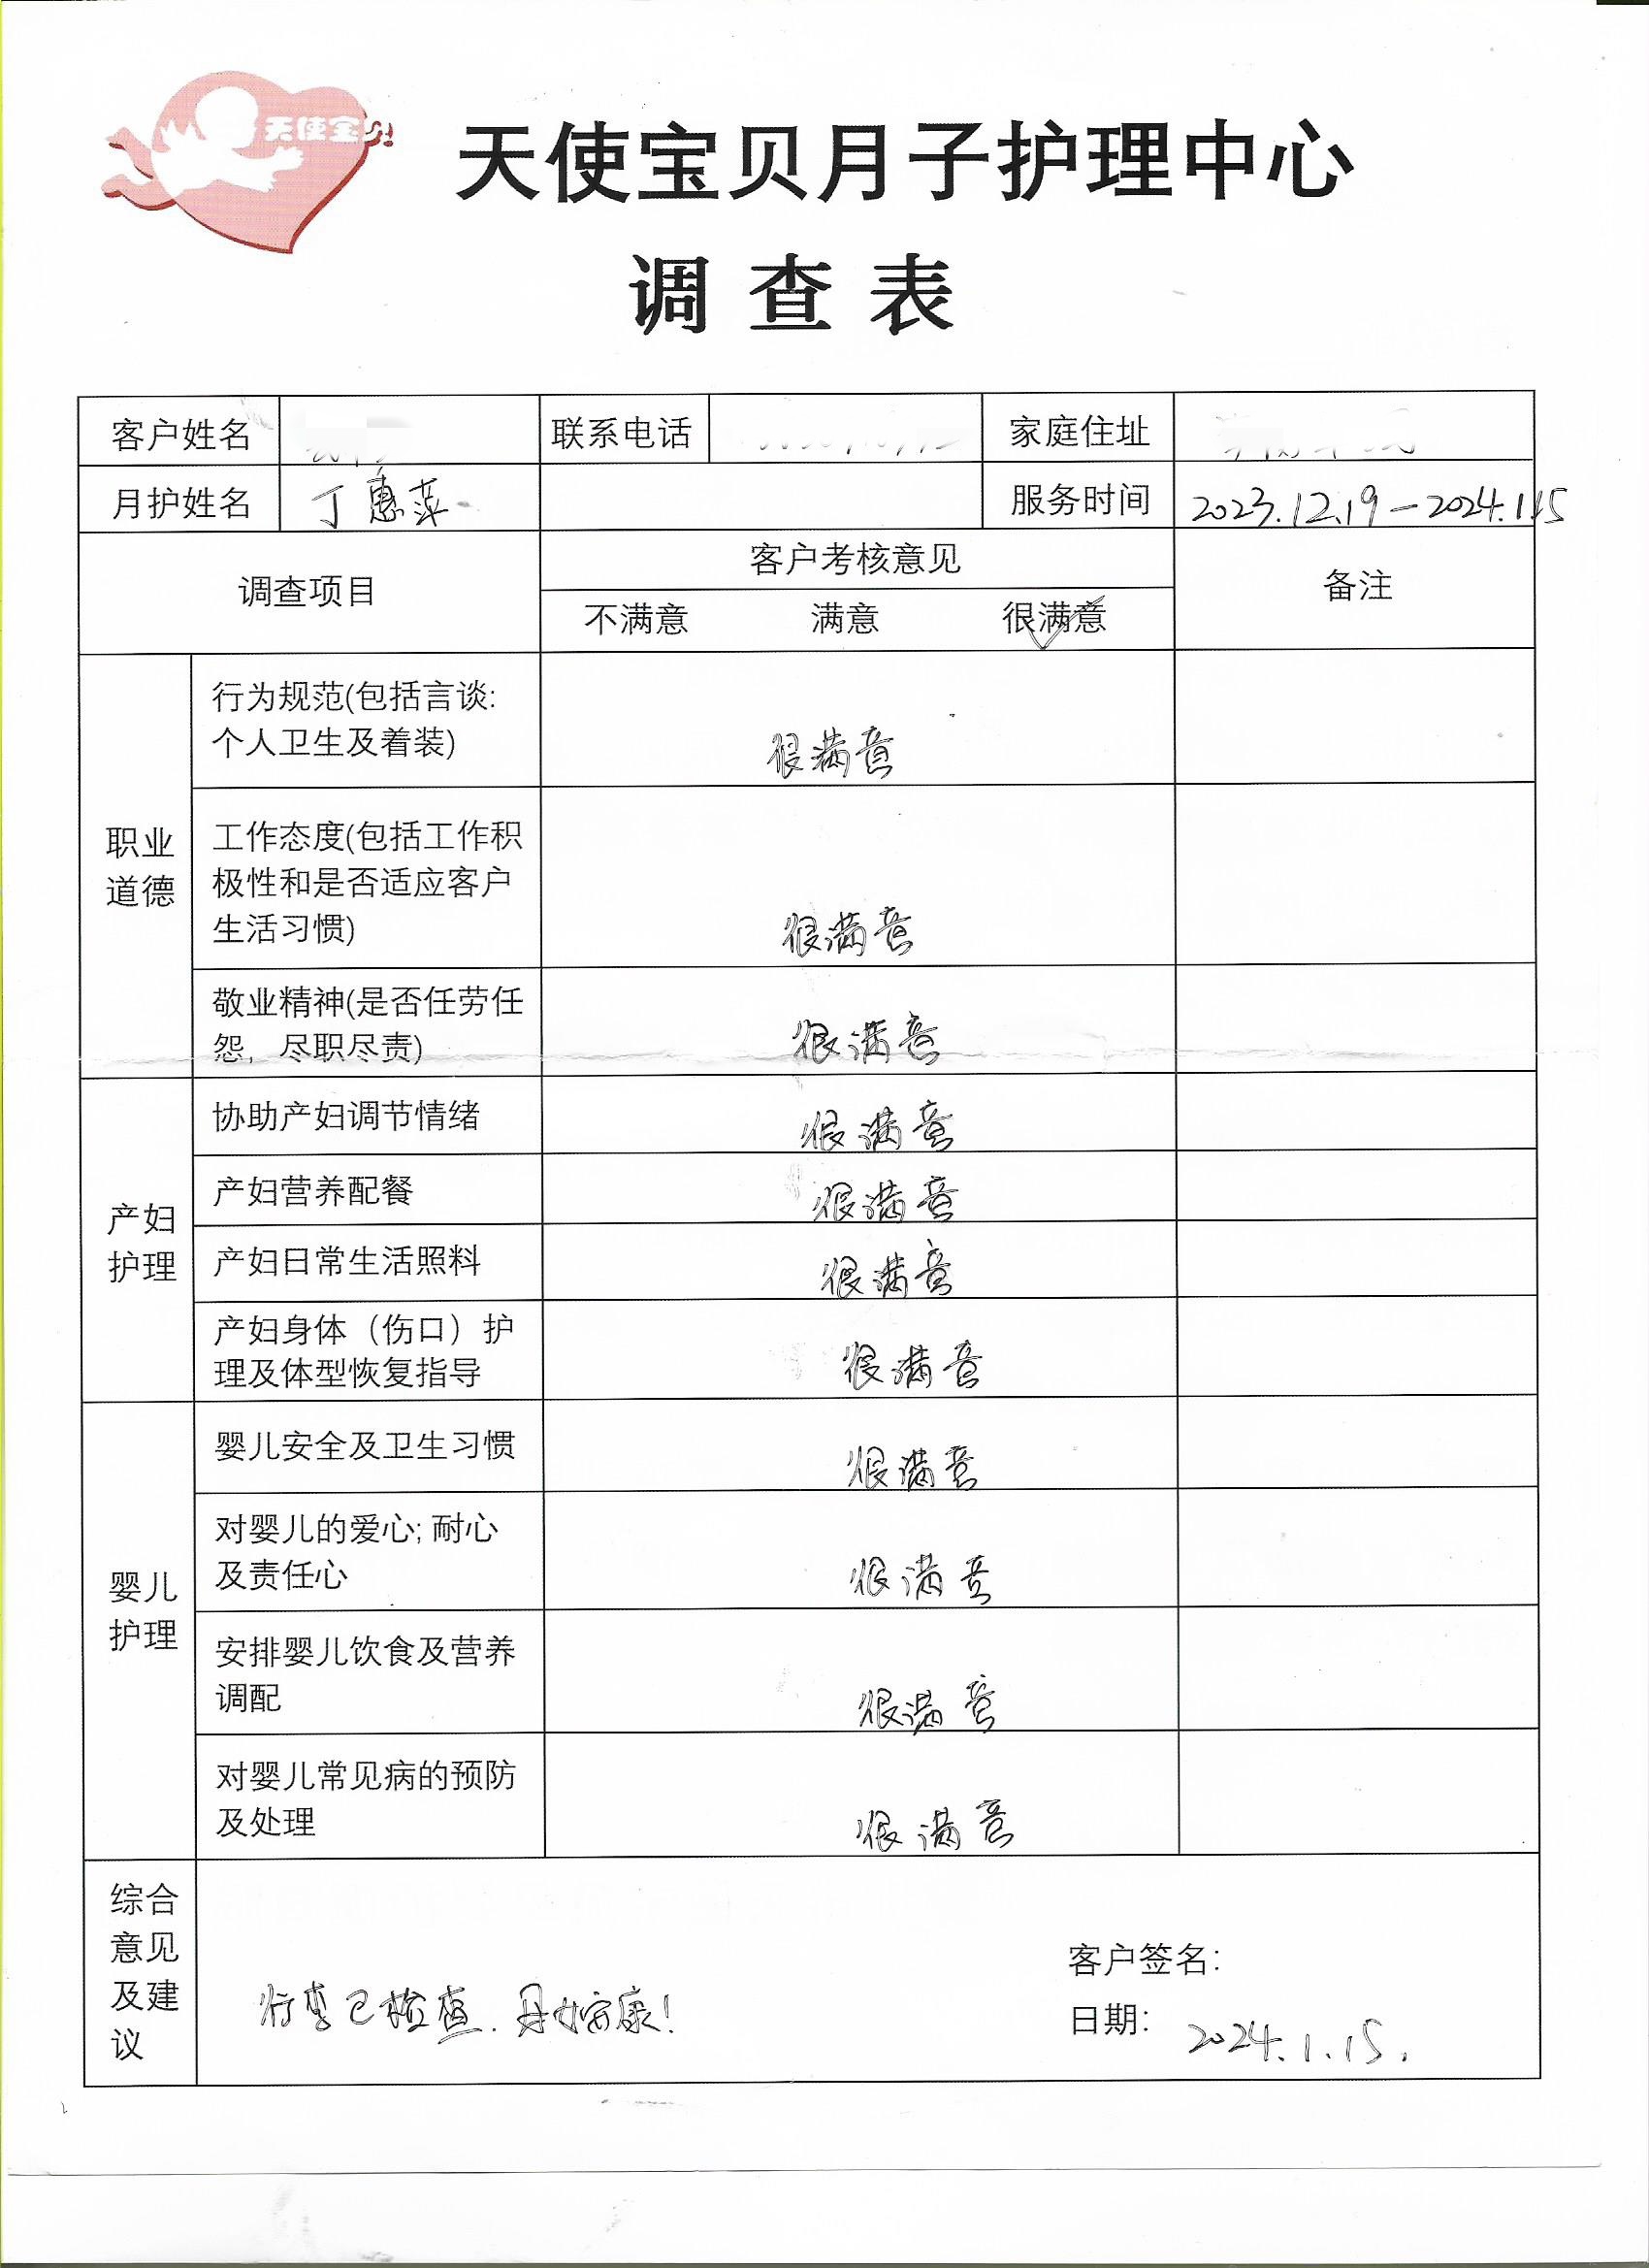 天使宝贝
天使宝贝月子护理中心
调查表
客户姓名 联系电话 家庭住址
月护姓名 丁惠萍 服务时间 2023.12.19-2024.1.15
调查项目 客户考核意见 备注
不满意 满意 很满意
职业
道德
行为规范(包括言谈:
个人卫生及着装)
很满意
工作态度(包括工作积
极性和是否适应客户
生活习惯)
很满意
敬业精神(是否任劳任
怨，尽职尽责)
很满意
产妇
护理
协助产妇调节情绪 很满意
产妇营养配餐 很满意
产妇日常生活照料 很满意
产妇身体（伤口）护
理及体型恢复指导
很满意
婴儿
护理
婴儿安全及卫生习惯 很满意
对婴儿的爱心; 耐心
及责任心
很满意
安排婴儿饮食及营养
调配
很满意
对婴儿常见病的预防
及处理
很满意
综合
意见
及建
议
行李已检查.母女安康!
客户签名:
日期: 2024.1.15.